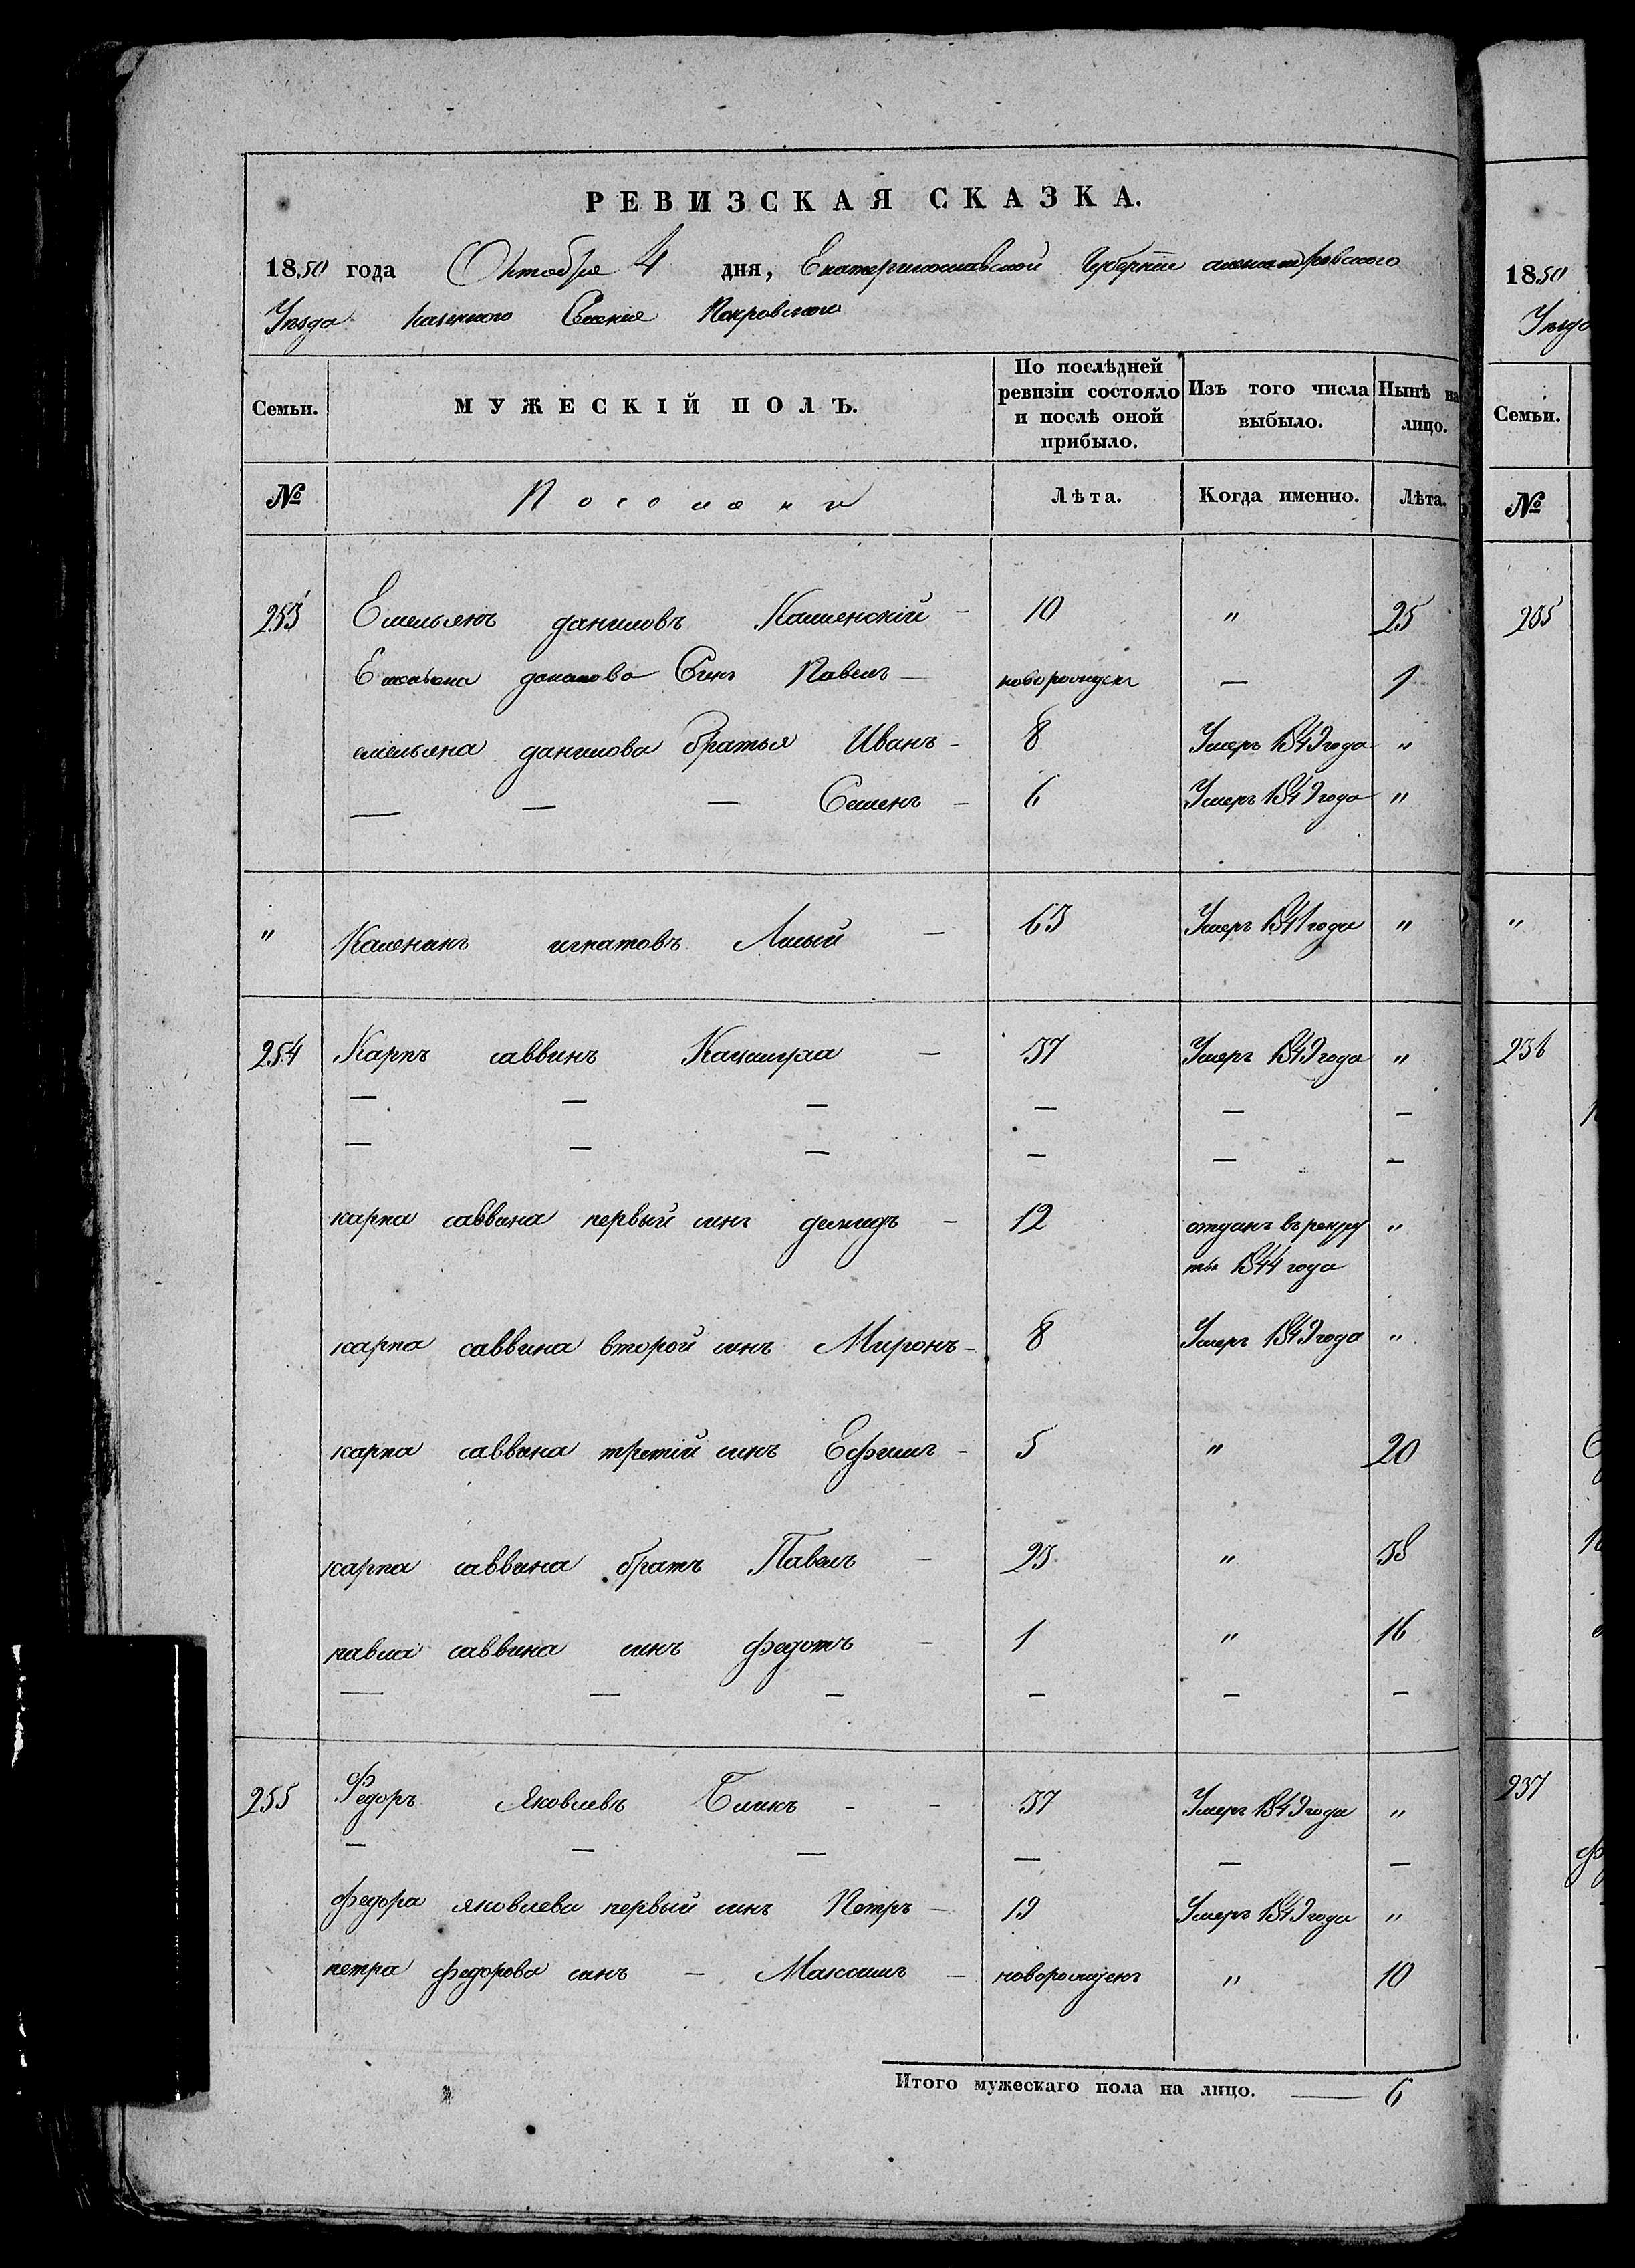 РЕВИЗСКАЯ СКАЗКА.
1850 года Октобря 4 дня, Екатеринославской Губернии александровского
Уезда казенного Селения Покровского
Семьи. МУЖЕСКІЙ ПОЛЪ. По послѣдней ревизіи состояло и послѣ оной прибыло. Изъ того числа выбыло. Нынѣ на лицо.
№ Поселяни Лѣта. Когда именно. Лѣта.
253 Емельянъ даниловъ Каменскій - 10 " 25
Емельяна данилова Синъ Павелъ — новорожденъ — 1
емельяна данилова братья Иванъ - 8 Умеръ 1849 года "
— — — Семенъ - 6 Умеръ 1849 года "
" игнатовъ - 63 Умеръ 1841 года "
254 Карпъ саввинъ - 37 Умеръ 1849 года "
— — — — — —
— — — — — —
карпа саввина первый синъ демидъ - 12 отданъ въ рекру "
ты 1844 года
карпа саввина второй синъ Миронъ - 8 Умеръ 1849 года "
карпа саввина третій синъ Ефимъ - 5 " 20
карпа саввина братъ Павелъ - 23 " 38
павла саввина синъ федотъ - 1 " 16
— — — — — —
255 Федоръ Яковлевъ - - 37 Умеръ 1849 года "
— — — — — —
федора яковлева первый синъ Петръ - 19 Умеръ 1849 года "
петра федорова синъ - Максимъ - новорожденъ " 10
Итого мужескаго пола на лицо. — 6
1850
Семьи.
№
235
"
236
237